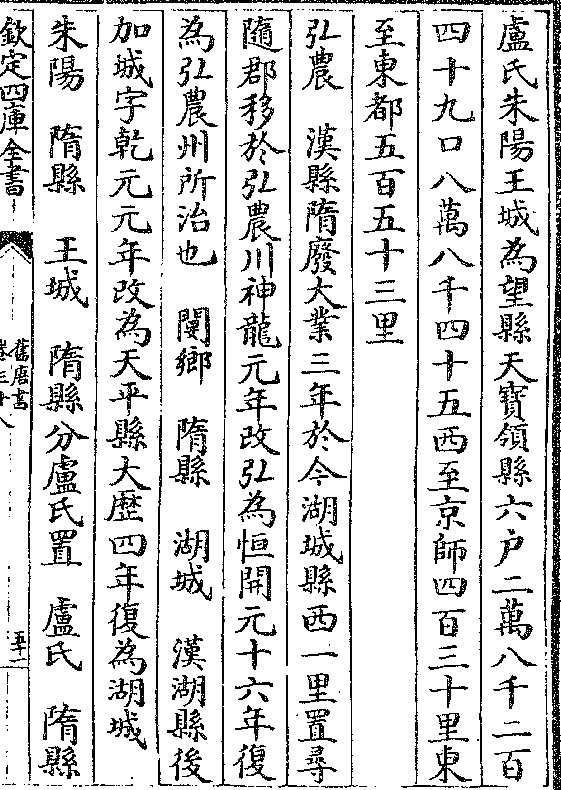 盧氏朱陽王城為望縣天寶領縣六户二萬八千二百
四十九口八萬八千四十五西至京師四百三十里東
至東都五百五十三里
弘農　漢縣隋廢大業三年於今湖城縣西一里置尋
隨郡移於弘農川神龍元年改弘為恒開元十六年復
為弘農州所治也　閿鄉　隋縣　湖城　漢湖縣後
加城字乾元元年改為天平縣大歴四年復為湖城
朱陽　隋縣　王城　隋縣分盧氏置　盧氏　隋縣
欽定四庫全書
舊唐書
卷三十八